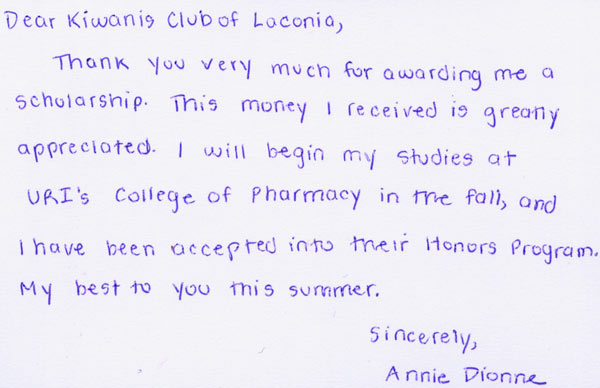 Dear Kiwanis Club of Laconia,
Thank you very much for awarding me a
scholarship. This money I received is greatly
appreciated. I will begin my studies at
URI's College of Pharmacy in the fall, and
I have been accepted into their Honors Program.
My best to you this summer.
Sincerely,
Annie Dionne